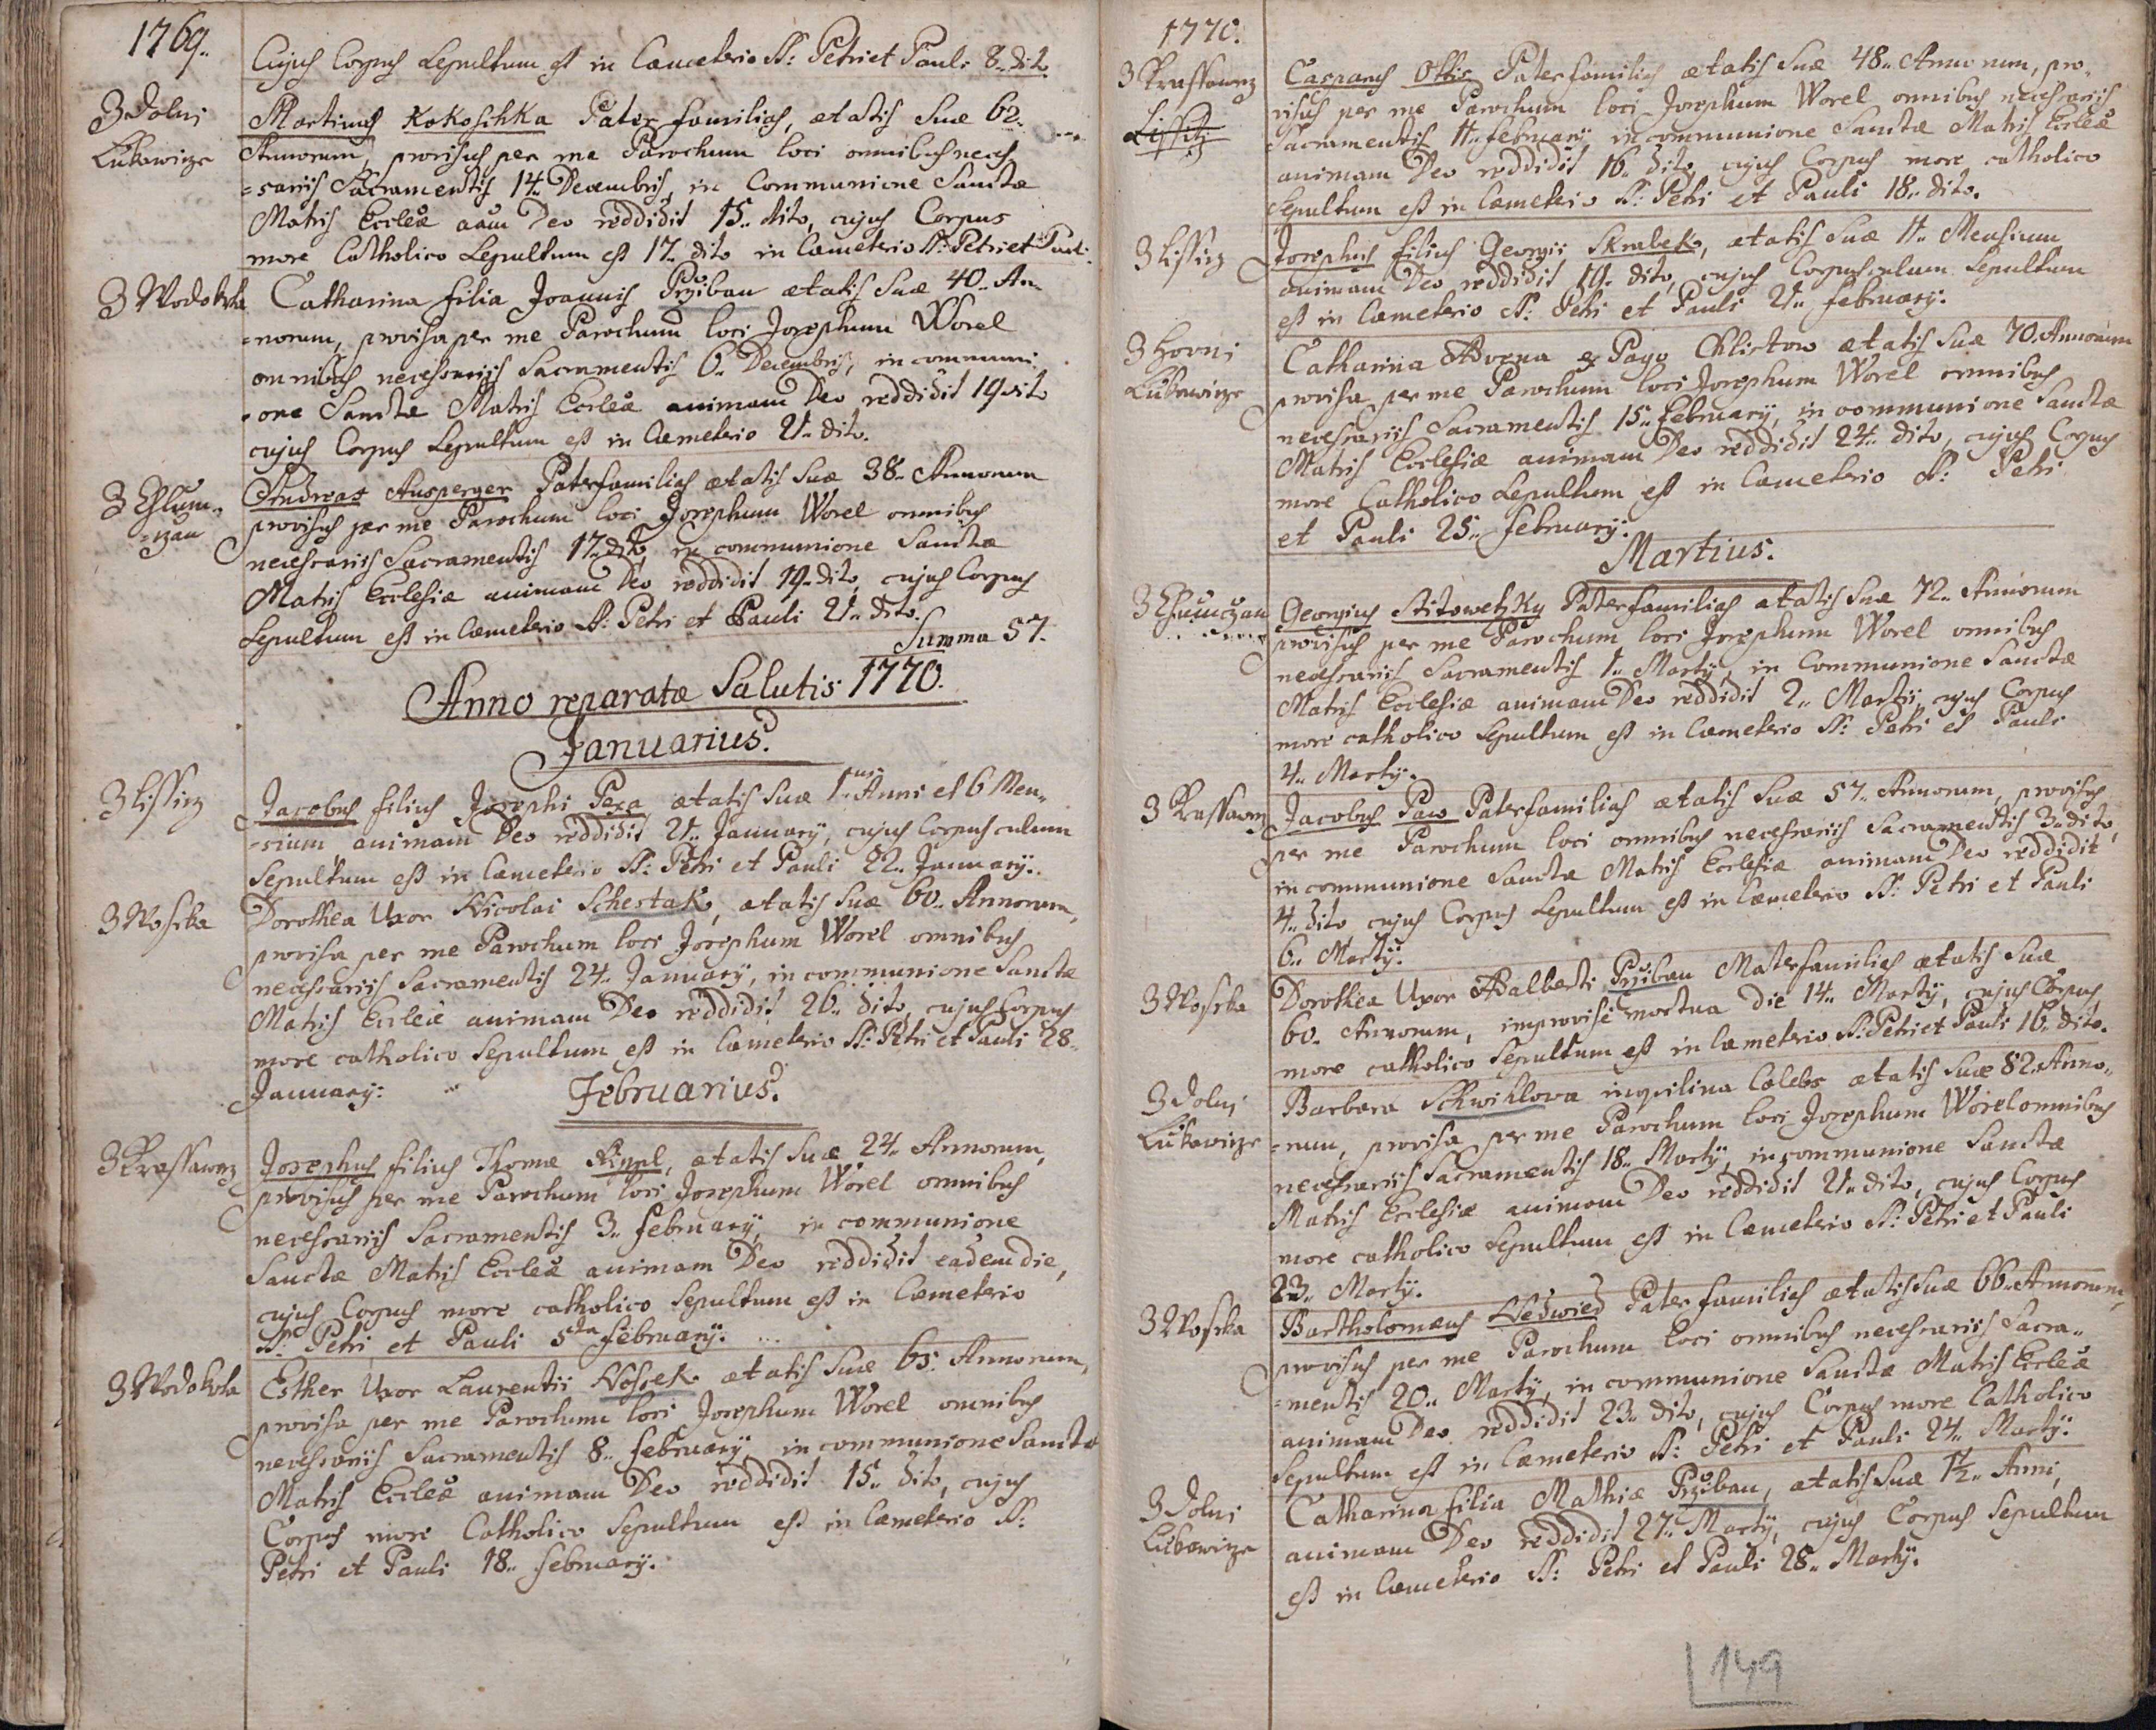 1769.
Cujus Corpus Sepultum est in Cæmeterio SS: Petri et Pauli 8. dito
Z Dolni
Lukowicze
Martinus Kokoschka Pater familias, ætatis suæ 62.
Annorum, provisus per me Parochum loci omnibus neces
=sariis Sacramentis 14. Decembris, in Communione Sanctæ
Matris Eccleæ aãm Deo reddidit 15. dito, cujus Corpus
more Catholico Sepultum est 17. dito in Cæmeterio SS: Petri et Pauli.
Z Wodokrt
Catharina filia Joannis Przibau ætatis suæ 40. An
=norum, provisa per me Parochum loci Josephum Worel
omnibus necessariis Sacramentis 6. Decembris, in communi
=one Sanctæ Matris Eccleæ animam Deo reddidit 19 dito
cujus Corpus Sepultum est in Cæmeterio 21. dito.
Z Chlum,,
=czan
Andreas Ausperger Paterfamilias ætatis suæ 38. Annorum
provisus per me Parochum loci Josephum Worel omnibus
necessariis Sacramentis 17. dito, in communione Sanctæ
Matris Ecclesiæ animam Deo reddidit 19. dito, cujus Corpus
Sepultum est in Cæmeterio SS: Petri et Pauli 21. dito.
Summa 57.
Anno reparatæ Salutis 1770.
Januarius.
Z Lissicz
Jacobus filius Josephi Pexa ætatis suæ 1. Anni et 6 Men,,
=sium animam Deo reddidit 21. January, cujus Corpusculum
Sepultum est in Cæmeterio SS: Petri et Pauli 22. January.
Z Wosrka
Dorothea Uxor Nicolai Schestak, ætatis suæ 60. Annorum,
provisa per me Parochum loci Josephum Worel omnibus
necessariis Sacramentis 24. January, in communione Sanctæ
Matris Eccleæ animam Deo reddidit 26. dito, cujus Corpus
more catholico Sepultum est in Cæmeterio SS: Petri et Pauli 28.
January.
Februarius.
Z Krassawcz
Josephus filius Thomæ Rippl, ætatis suæ 24. Annorum,
provisus per me Parochum loci Josephum Worel omnibus
necessariis Sacramentis 3. february, in communione
Sanctæ Matris Eccleæ animam Deo reddidit eadem die,
cujus Corpus more catholico Sepultum est in Cæmeterio
SS: Petri et Pauli 5ta february.
Z Wodokrt
Esther Uxor Laurentii Nossek ætatis suæ 65. Annorum,
provisa per me Parochum loci Josephum Worel omnibus
necessariis Sacramentis 8. february, in communione Sanctæ
Matris Eccleæ animam Deo reddidit 15. dito, cujus
Corpus more Catholico Sepultum est in Cæmeterio SS:
Petri et Pauli 18. february.
1770.
Z Krassawcz
Lissitz
Casparus Ottis Paterfamilias ætatis suæ 48. Annorum, pro,,
visus per me Parochum loci Josephum Worel omnibus necessariis
Sacramentis 11. february, in communione Sanctæ Matris Eccleæ
animam Deo reddidit 16. dito, cujus Corpus more catholico
Sepultum est in Cæmeterio SS: Petri et Pauli 18. dito.
Z Lissicz
Josephus filius Georgii Skrabek, ætatis suæ 11. Mensium
animam Deo reddidit 19. dito, cujus Corpusculum Sepultum
est in Cæmeterio SS: Petri et Pauli 21. february.
Z Horni
Lukowicze
Catharina Advena ex Pago Chlistow ætatis suæ 70. Annorum
provisa per me Parochum loci Josephum Worel omnibus
necessariis Sacramentis 15. february, in communione Sanctæ
Matris Ecclesiæ animam Deo reddidit 24. dito, cujus Corpus
more Catholico Sepultum est in Cæmeterio SS: Petri
et Pauli 25. february.
Martius.
Z Chlumczan
Georgius Stitowetzky Paterfamilias ætatis suæ 72. Annorum
provisus per me Parochum loci Josephum Worel omnibus
necessariis Sacramentis 1. Marty, in Communione Sanctæ
Matris Ecclesiæ animam Deo reddidit 2. Marty, cujus Corpus
more catholico Sepultum est in Cæmeterio SS: Petri et Pauli
4. Marty.
Z Krassawcz
Jacobus Paw Paterfamilias ætatis suæ 57. Annorum, provisus
per me Parochum loci omnibus necessariis Sacramentis 3. dito,
in communione Sanctæ Matris Ecclesiæ animam Deo reddidit
4. dito cujus Corpus Sepultum est in Cæmeterio SS: Petri et Pauli
6. Marty.
Z Wosrka
Dorothea Uxor Adalberti Przibau Materfamilias ætatis suæ
60. Annorum, improvisè mortua die 14. Marty, cujus Corpus
more catholico Sepultum est in Cæmeterio SS: Petri et Pauli 16. dito.
Z Dolni
Lukowicze
Barbara Schwihlova inquilina Cælebs ætatis suæ 82. Anno,,
=rum, provisa per me Parochum loci Josephum Worel omnibus
necessariis Sacramentis 18. Marty, in communione Sanctæ
Matris Ecclesiæ animam Deo reddidit 21. dito, cujus Corpus
more catholico Sepultum est in Cæmeterio SS: Petri et Pauli
23. Marty.
Z Wosrka
Bartholomæus Nedwied Paterfamilias ætatis suæ 66. Annorum,
provisus per me Parochum Loci omnibus necessariis Sacra,,
=mentis 20. Marty, in communione Sanctæ Matris Eccleæ
animam Deo reddidit 23. dito, cujus Corpus more Catholico
Sepultum est in Cæmeterio SS: Petri et Pauli 24. Marty.
Z Dolni
Lukowicze
Catharina filia Mathiæ Przibau, ætatis suæ 1½. Anni,
animam Deo reddidit 27. Marty, cujus Corpus Sepultum
est in Cæmeterio SS: Petri et Pauli 28. Marty.
149